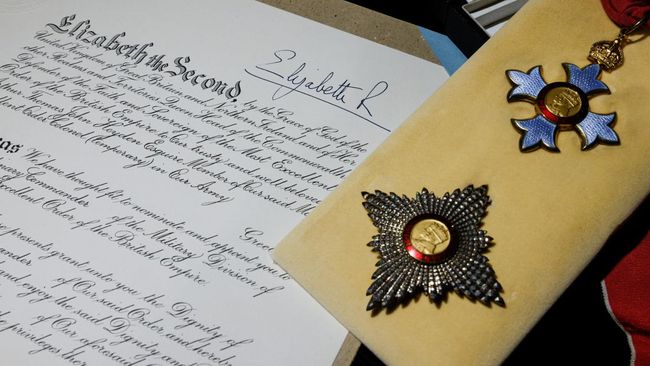 Elizabeth the Second,
Elizabeth R
by the Grace of God of the
United Kingdom of Great Britain and Northern Ireland and of Her
other Realms and Territories Queen, Head of the Commonwealth,
Defender of the Faith and Sovereign of the Most Excellent
Order of the British Empire to Our trusty and well beloved
Thomas John Esquire Member of Our said Most
Excellent Order Colonel (temporary) in Our Army
Gree
as We have thought fit to nominate and appoint you
nary Commander of the Military Division of
Excellent Order of the British Empire
presents grant unto you the Dignity of
ander of Our said Order and hereby
and enjoy the said Dignity and
of Our aforesaid
privileges ther